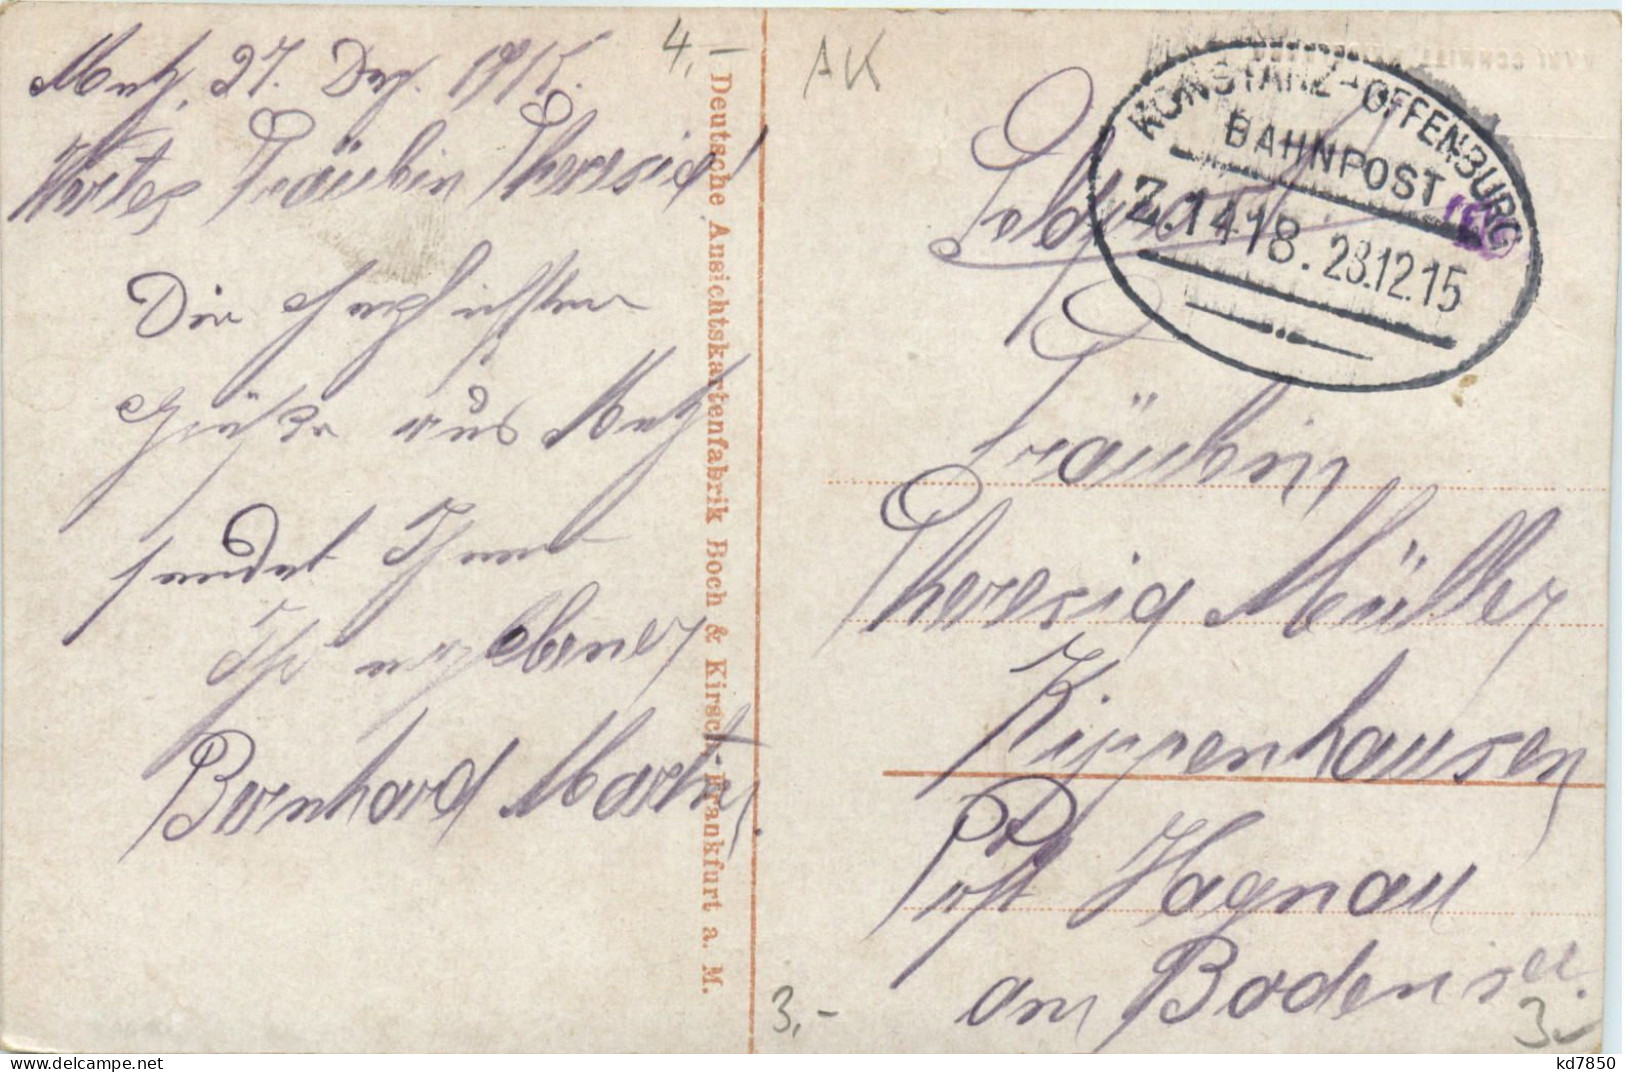 4,-
AK
Metz, 27. Dez. 1915.
Wertes Fräulein Theresia!
Die herzlichsten
Grüße aus Metz
sendet Ihnen
Ihr ergebener
Bernhard Martin.
Deutsche Ansichtskartenfabrik Boch & Kirsch, Frankfurt a. M.
KONSTANZ-OFFENBURG
BAHNPOST
Z.1418. 28.12.15
Feldpost
Fräulein
Theresia Müller
Kippenhausen
Post Hagnau
am Bodensee.
3,-
3.-
kd7850